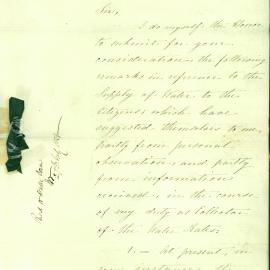 Sir,
I do myself the Honor
to submit for your
consideration the following
remarks in reference to the
Supply of Water to the
Citizens which have
suggested themselves to me,
partly from personal
observation, and partly
from information
received, in the course
of my duty as Collector
of the Water Rates;
1. — At present, in